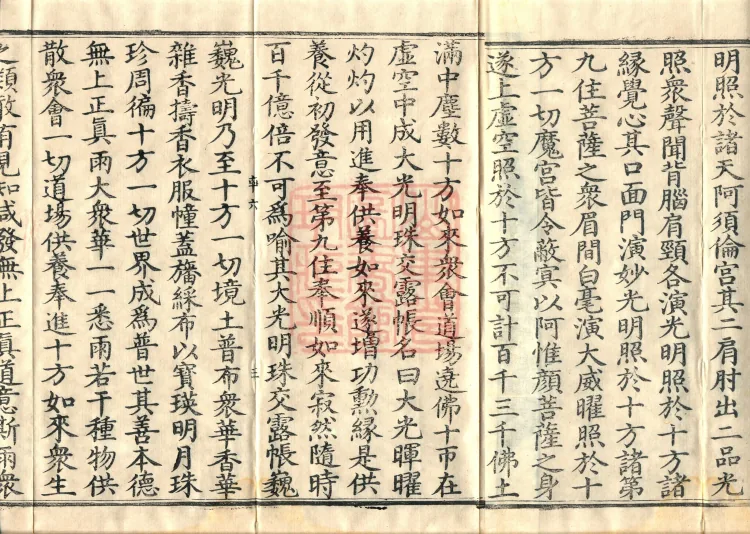 明照於諸天阿須倫宮其二肩肘出二品光
照衆聲聞背腦肩頸各演光明照於十方諸
緣覺心其口面門演妙光明照於十方諸第
九住菩薩之衆眉間白毫演大威曜照於十
方一切魔宮皆令蔽冥以阿惟顏菩薩之身
遂上虛空照於十方不可計百千三千佛土
滿中塵數十方如來衆會道場遶佛十帀在
虛空中成大光明珠交露帳名曰大光暉曜
灼灼以用進奉供養如來遂增功勳緣是供
養從初發意至第九住奉順如來寂然隨時
百千億倍不可爲喻其大光明珠交露帳魏
巍光明乃至十方一切境土普布衆華香華
雜香擣香衣服幢蓋旛綵布以寶瑛明月珠
珍周徧十方一切世界成爲普世其善本德
無上正眞雨大衆華一一悉雨若干種物供
散衆會一切道場供養奉進十方如來衆生
之類敢有見知咸發無上正眞道意斯雨衆